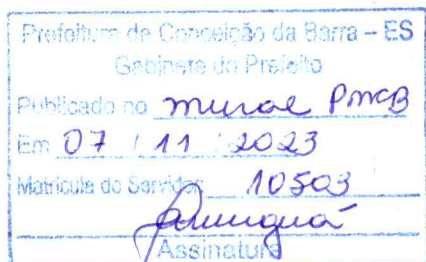 Prefeitura de Conceição da Barra – ES
Gabinete do Prefeito
Publicado no mural PMCB
Em 07 / 11 / 2023
Matrícula do Servidor 10503
Assinatura